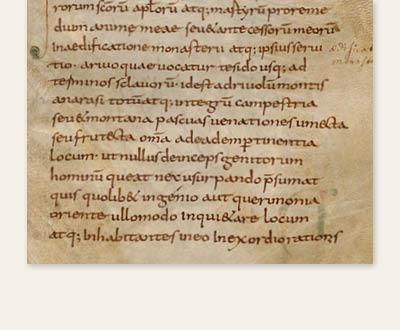 rorum scōrū apłorū atq; martyrū pro reme
dium anıme meae seu & antecessorū meorū
In aedificatione monasterii atq; ipsius servi
tio · a rivo quae vocatur tesido usq; ad
terminos sclavorū · id est ad rivolū montis
anarasi totū atq; integrū campestria
seu & montana pascuas venationes
seu frutecta om̄a ade adem pertinentia
locum · ut nullus deinceps genitorum
hominū queat nec usurpando p̄sumat
quis quolib& ingenio aut querimonia
oriente ullomodo inqui&are locum
atq; Inhabitantes in eo In exordio rationis